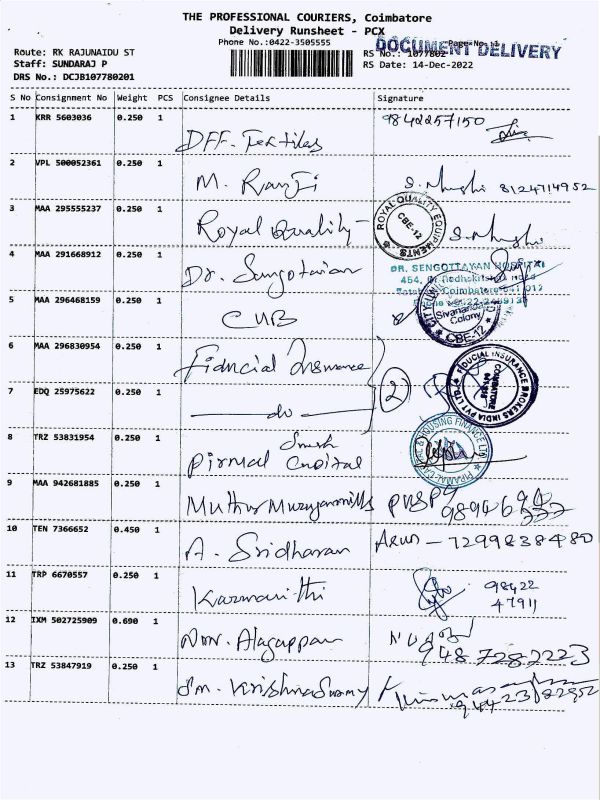 THE PROFESSIONAL COURIERS, Coimbatore
Delivery Runsheet - PCX
Phone No.:0422-3505555
Page No.:1
DOCUMENT DELIVERY
Route: RK RAJUNAIDU ST
RS No.: 1077802
Staff: SUNDARAJ P
RS Date: 14-Dec-2022
DRS No.: DCJB107780201
S No Consignment No Weight PCS Consignee Details Signature
1 KRR 5603036 0.250 1 9842257150
DFF. Textiles
2 VPL 500052361 0.250 1
M. Ranji 8124714952
3 MAA 295555237 0.250 1
Royal Quality
ROYAL QUALITY EQUIPMENTS
CBE-12
4 MAA 291668912 0.250 1
Dr. Sengotaian
DR. SENGOTTAYAN HOSPITAL
5 MAA 296468159 0.250 1
CUB
Sivananda
Colony
CBE-12
6 MAA 296830954 0.250 1
Fiducial Insurance
2
FIDUCIAL INSURANCE BROKERS INDIA PVT LTD.
COIMBATORE
7 EDQ 25975622 0.250 1
do
8 TRZ 53831954 0.250 1
Pirmal Capital
PIRAMAL CAPITAL & HOUSING FINANCE LTD
9 MAA 942681885 0.250 1
10 TEN 7366652 0.450 1
A. Sridharan
Arun - 7299838480
11 TRP 6670557 0.250 1
98422
47911
12 IXM 502725909 0.690 1
Alagappan
9487287223
13 TRZ 53847919 0.250 1
Sm. Krishnaswamy